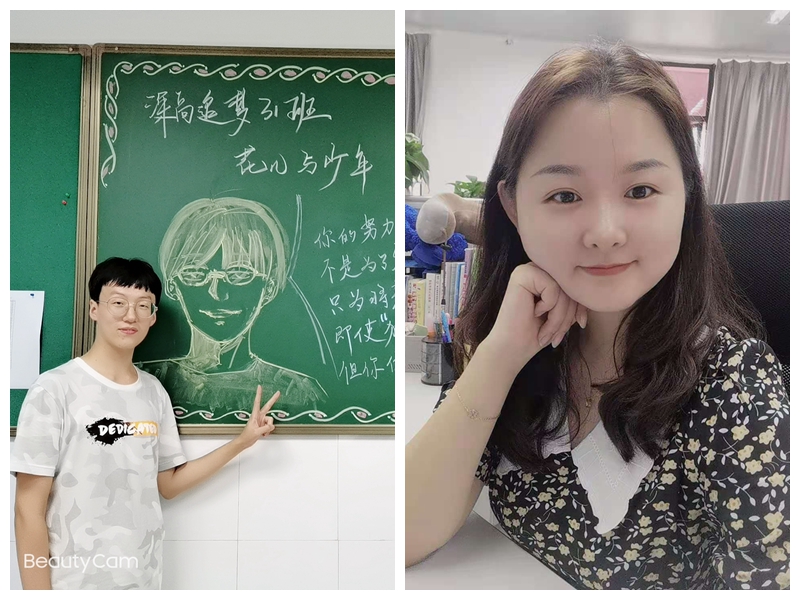 深高追梦31班
花儿与少年
你的努力
不是为了
只为将
即使"
但你
DEDICATED
BeautyCam